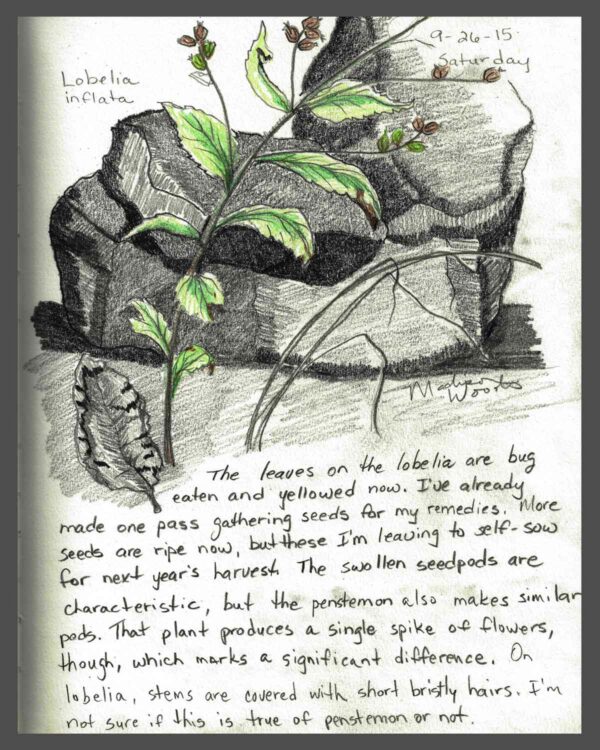 Lobelia
inflata
9-26-15
Saturday
Woods
The leaves on the lobelia are bug
eaten and yellowed now. I've already
made one pass gathering seeds for my remedies. More
seeds are ripe now, but these I'm leaving to self-sow
for next year's harvest. The swollen seedpods are
characteristic, but the penstemon also makes similar
pods. That plant produces a single spike of flowers,
though, which marks a significant difference. On
lobelia, stems are covered with short bristly hairs. I'm
not sure if this is true of penstemon or not.